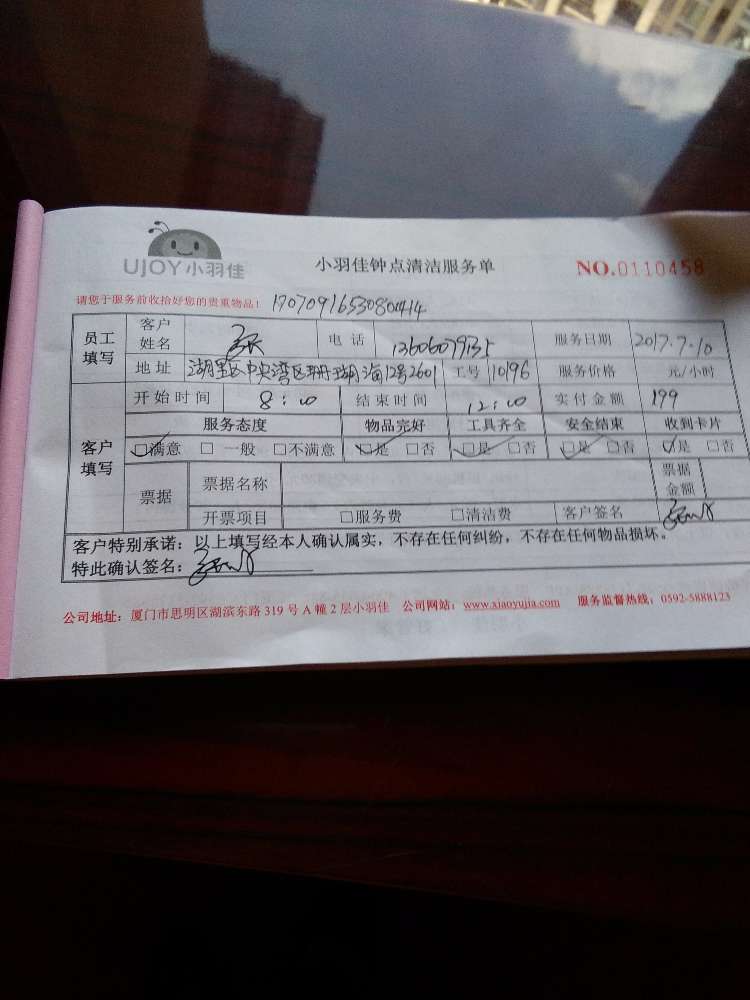 UJOY小羽佳
小羽佳钟点清洁服务单
NO.0110458
请您于服务前收拾好您的贵重物品!
员工填写 客户姓名 张 电话 服务日期 2017.7.10
地址 湖里区中央湾区珊瑚海12号2601 工号 10196 服务价格 元/小时
客户填写 开始时间 8:00 结束时间 12:00 实付金额 199
服务态度 物品完好 工具齐全 安全结束 收到卡片
☑满意 □ 一般 □不满意 ☑是 □否 ☑是 □否 ☑是 □否 ☑是 □否
票据 票据名称 票据金额
开票项目 □服务费 □清洁费 客户签名
客户特别承诺:以上填写经本人确认属实,不存在任何纠纷,不存在任何物品损坏。
特此确认签名:
公司地址:厦门市思明区湖滨东路 319 号 A 幢 2 层小羽佳 公司网站:www.xiaoyujia.com 服务监督热线:0592-5888123